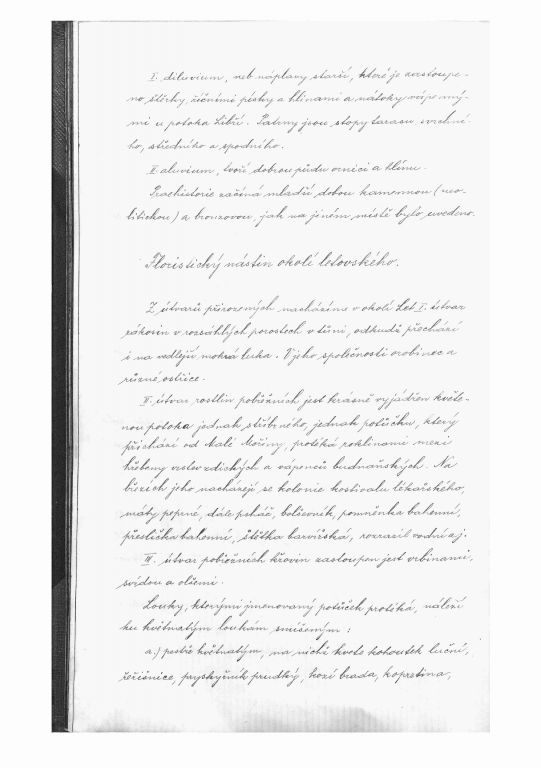 I. diluvium, neb náplavy starší, které je zastoupe-
no štěrky, říčními písky a hlínami a nátoky vápenný-
mi u potoka Libří. Patrny jsou stopy tarasu svrchní-
ho, středního a spodního.
II. aluvium, tvoří dobrou půdu ornici a hlínu.
Praehistorie začíná mladší dobou kamennou (neo-
litickou) a bronzovou, jak na jiném místě bylo uvedeno.
Floristický nástin okolí letovského.
Z útvarů přirozených nacházíme v okolí Let I. útvar
rákosin v rozsáhlých porostech v tůni, odkudž přechází
i na vedlejší mokrá luka. V jeho společnosti orobinec a
různé ostřice.
II. útvar rostlin pobřežních jest krásně vyjádřen květe-
nou potoka jednak stříbrného, jednak potůčku, který
přichází od Malé Mořiny, protéká roklinami mezi
hřebeny vrstev zdických a vápenců budňanských. Na
březích jeho nacházejí se kolonie kostivalu lékařského,
máty peprné, dále psháč, bolševník, pomněnka bahenní,
přeslička bahenní, štětka barvířská, rozrazil vodní aj.
III. útvar pobřežních křovin zastoupen jest vrbinami,
svídou a olšemi.
Louky, kterými jmenovaný potůček protéká, náleží
ku květnatým loukám smíšeným:
a.) pestře květnatým, na nichž kvete kohoutek luční,
řeřišnice, pryskyřník prudký, kozí brada, kopretina,